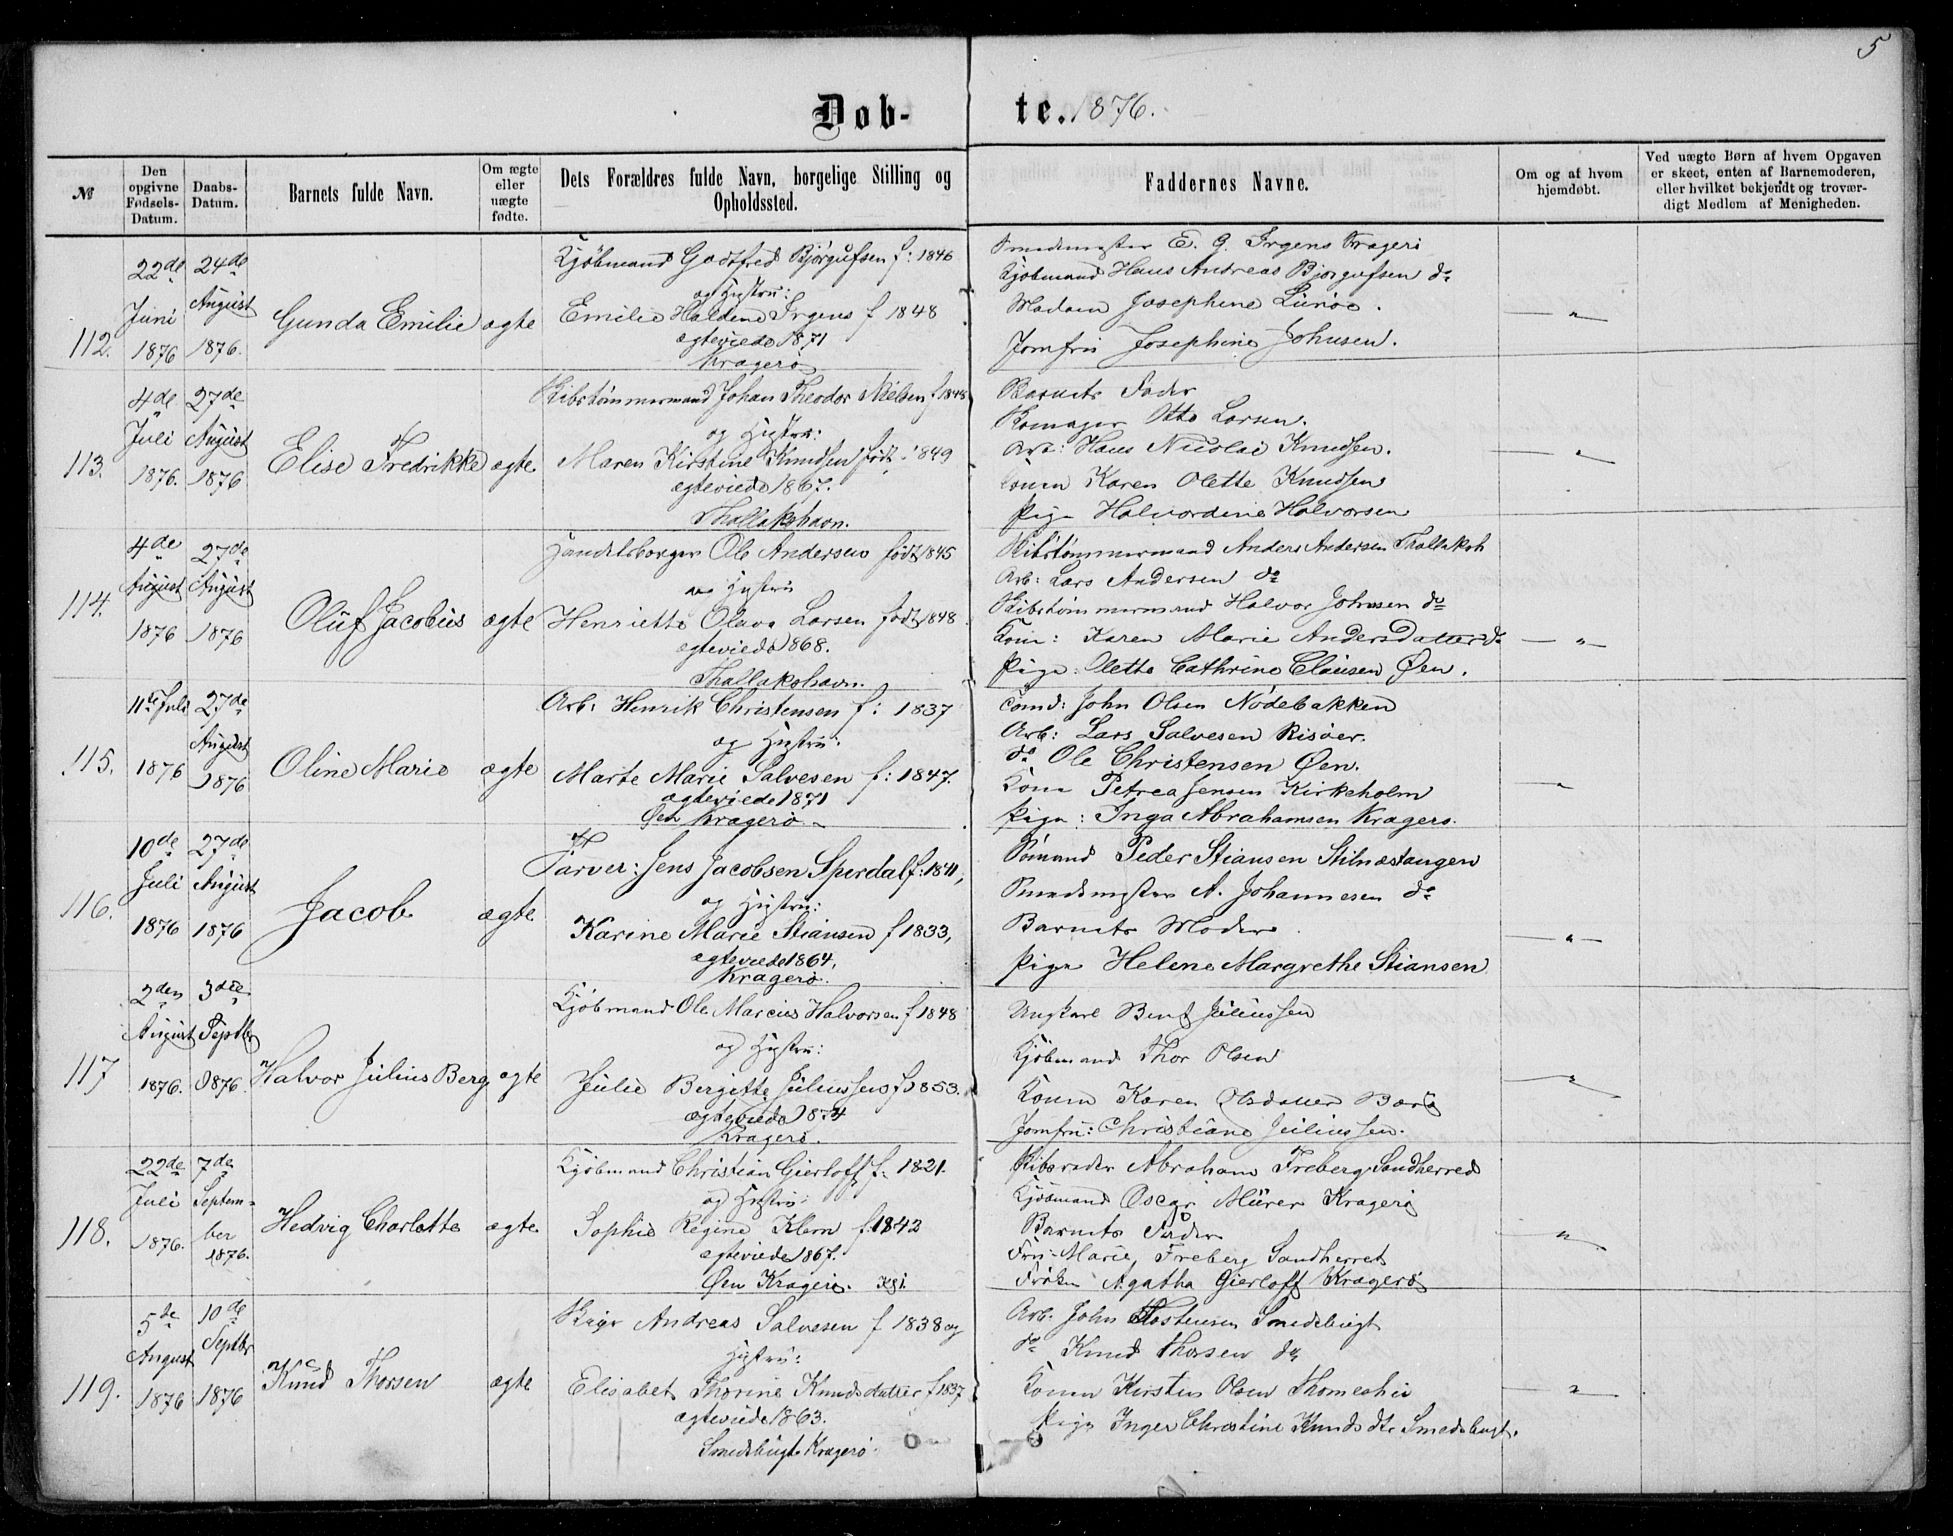 5
Døb-te. 1876.
№
Den opgivne Fødsels-Datum.
Daabs-Datum.
Barnets fulde Navn.
Om ægte eller uægte fødte.
Dets Forældres fulde Navn, borgelige Stilling og Opholdssted.
Faddernes Navne.
Om og af hvem hjemdøbt.
Ved uægte Børn af hvem Opgaven er skeet, enten af Barnemoderen, eller hvilket bekjendt og troværdigt Medlem af Menigheden.
112.
22de Juni 1876
24de August 1876.
Gunda Emilie
ægte
Kjøbmand Godtfred Bjørgufsen f: 1846
og Hustru:
Emilie Haldine Irgens f 1848
ægteviede 1871
Kragerø
Smedmester E. G. Irgens Kragerø
Kjøbmand Hans Andreas Bjørgufsen do
Madam Josephine
Jomfru Josephine Johnsen.
— " —
113.
4de Juli 1876.
27de August 1876
Elise Fredrikke
ægte
Skibstømmermand Johan Theodor Nielsen f 1848
og Hustru:
Maren Kirstine Knudsen født 1849
ægteviede 1867.
Thallakshavn.
Barnets Fader
Otto Larsen.
Arb: Hans Nicolai Knudsen.
Konen Karen Olette Knudsen
Pige Halvordine Halvorsen
— " —
114.
4de August 1876
27de August 1876
Oluf Jacobus
ægte
Handelsborger Ole Andersen født 1845
og Hustru
Henriette Olava Larsen født 1848
ægteviede 1868.
Thallakshavn.
Skibstømmermand Anders Andersen Thallaksh
Arb: Lars Andersen do
Skibstømmermand Halvor Johnsen do
Kone: Karen Marie Andersdatter do
Pige: Olette Cathrine Clausen Øen.
— " —
115.
11te Juli 1876
27de August 1876
Oline Marie
ægte
Arb: Henrik Christensen f: 1837
og Hustru:
Marte Marie Salvesen f: 1847.
ægteviede 1871
Øen Kragerø
Tømd: John Olsen Nødebakken
Arb: Lars Salvesen Risøer.
do Ole Christensen Øen.
Kone Petrea Jensen Kirkeholm
Pige: Inga Abrahamsen Kragerø.
— " —
116.
10de Juli 1876
27de August 1876
Jacob
ægte
Farver: Jens Jacobsen Sperdal f: 1841,
og Hustru:
Karine Marie Stiansen f 1833,
ægteviede 1864,
Kragerø.
Sømand Peder Stiansen Stilnæstangen
Smedmester A. Johannesen do
Barnets Moder
Pige Helene Margrethe Stiansen
— " —
117
2den August 1876.
3die Septbr 1876
Halvor Julius Berg
ægte
Kjøbmand Ole Marcus Halvorsen f 1848
og Hustru:
Julie Bergitte Juliussen f 1853.
ægteviede 1874
Kragerø.
Ungkarl Bent Juliussen
Kjøbmand Thor Olsen
Konen Karen Olsdatter Barø
Jomfru: Christiane Juliussen.
— " —
118.
22de Juli 1876.
7de September 1876.
Hedvig Charlotte
ægte
Kjøbmand Christian Gierloff f: 1821.
og Hustru:
Sophie Regine Klem f. 1842
ægteviede 1867.
Øen Kragerø.
Skibsreder Abraham Freberg Sandherred
Kjøbmand Oscar Mürer Kragerø
Barnets Fader
Fru: Marie Freberg Sandherret
Frøken Agatha Gierloff Kragerø
— " —
119.
5te August 1876
10de Septbr 1876
Knud Thorsen
ægte
Andreas Salvesen f 1838 og
Hustru:
Elisabet Thorine Knudsdatter f 1837
ægteviede 1863.
Smedsbugt Kragerø
Arb. John Smedsbugt
do Knud Thorsen do
Konen Kirsten Olsen
Pige Inger Christine Knudsdtr Smedsbugt.
— " —